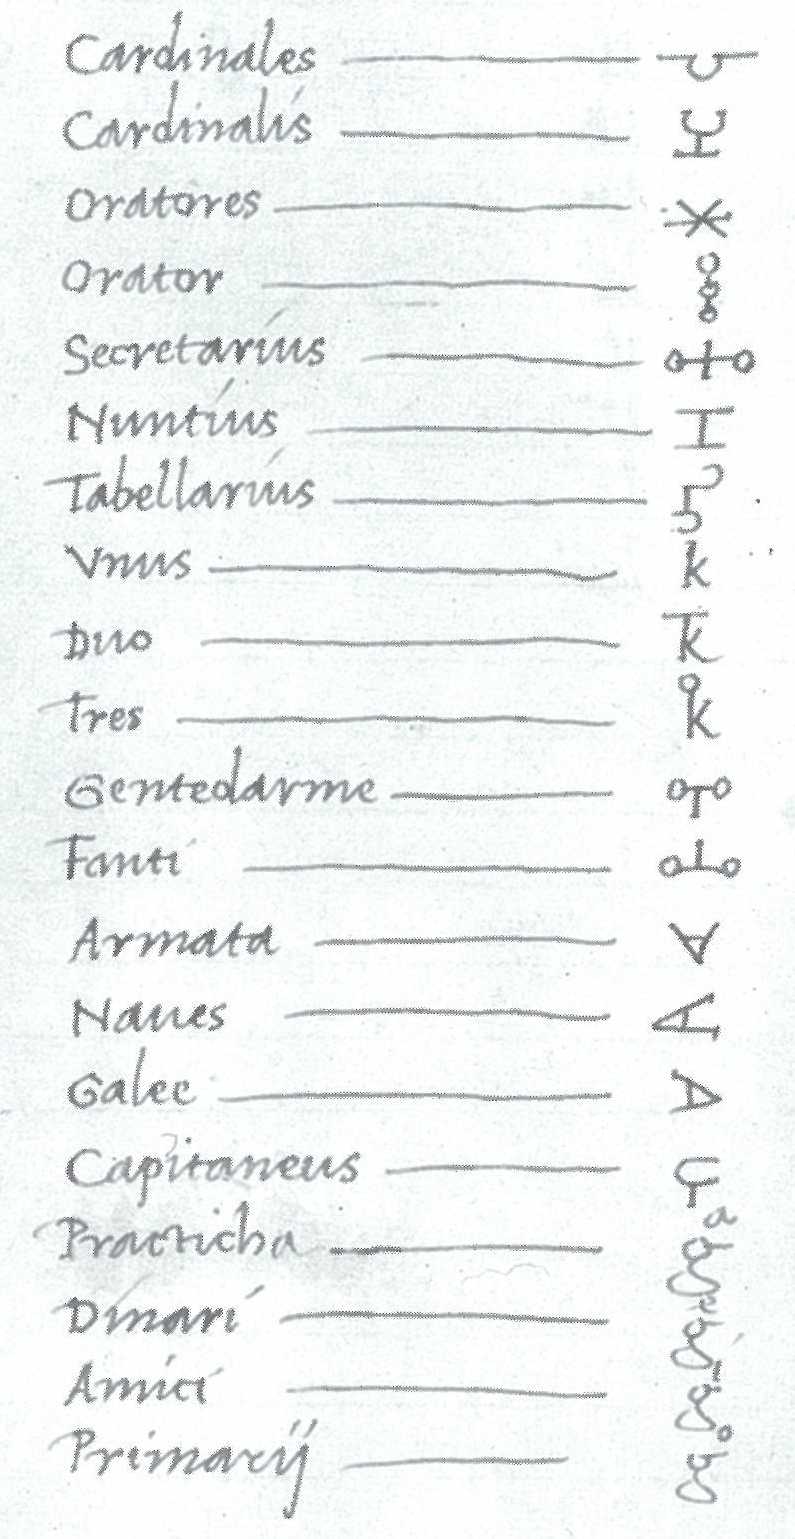 Cardinales
Cardinalis
Oratores
Orator
Secretarius
Nuntius
Tabellarius
Vnus k
Duo k̄
Tres k̊
Gentedarme
Fanti
Armata
Naues
Galee
Capitaneus
Practicha
Dinari
Amici
Primarij